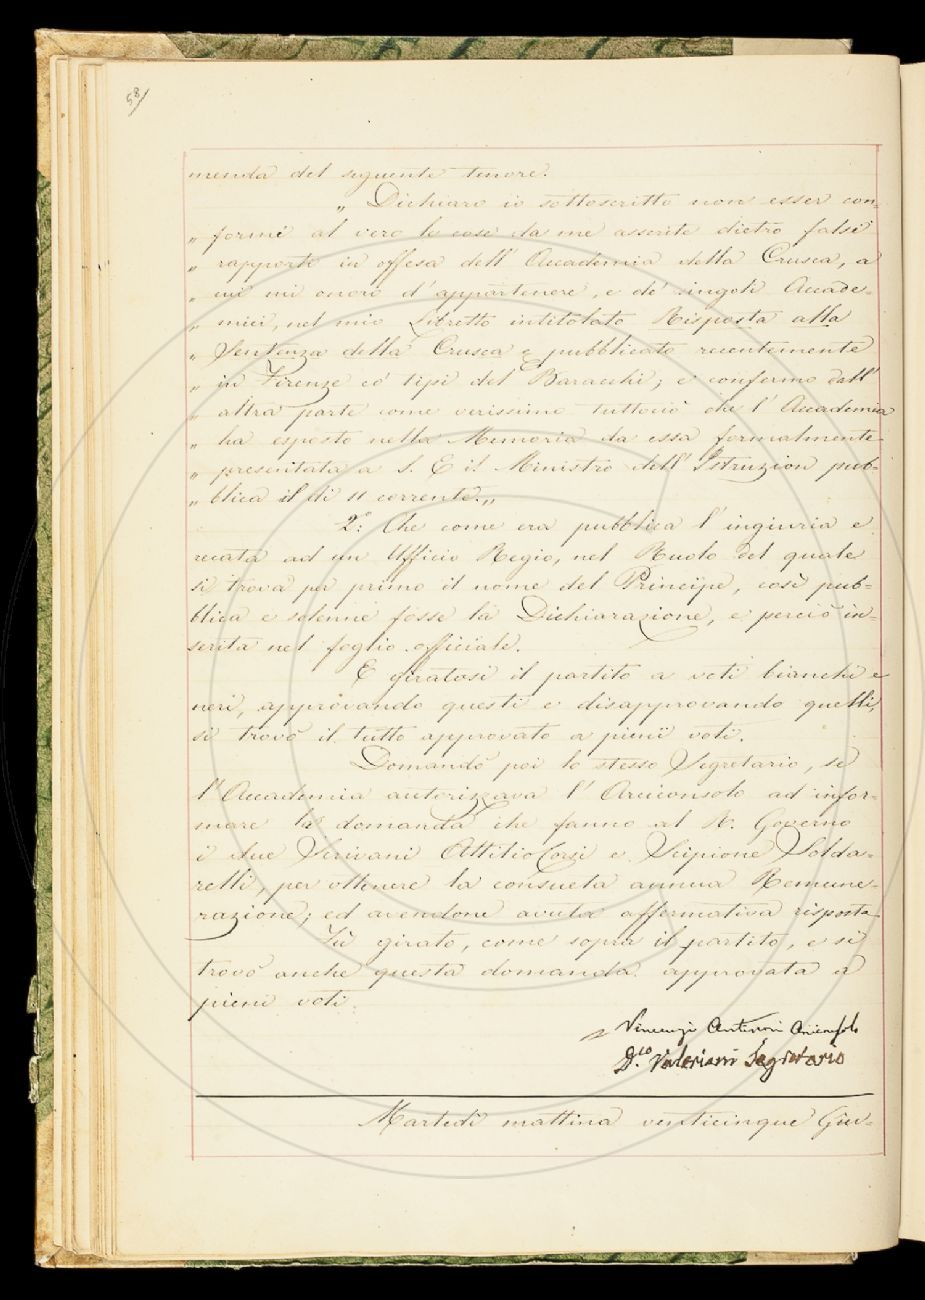 58
menda del seguente tenore.
„ Dichiaro io sottoscritto non esser con-
„ formi al vero le cose da me asserite dietro falsi
„ rapporti in offesa dell' Accademia della Crusca, a
„ cui mi onoro d' appartenere, e de' singoli Accade-
„ mici, nel mio Libretto intitolato Risposta alla
„ Sentenza della Crusca e pubblicato recentemente
„ in Firenze co' tipi del Baracchi; e confermo dall'
„ altra parte come verissimo tuttociò che l' Accademia
„ ha esposto nella Memoria da essa formalmente
„ presentata a S. E il Ministro dell' Istruzion pub-
„ blica il dì 11 corrente.„
2.° Che come era pubblica l' ingiuria e
recata ad un Ufficio Regio, nel Ruolo del quale
si trova per primo il nome del Principe, così pub-
blica e solenne fosse la Dichiarazione, e perciò in-
serita nel foglio officiale.
E giratosi il partito a voti bianchi e
neri, approvando questi e disapprovando quelli,
si trovò il tutto approvato a pieni voti.
Domandò poi lo stesso Segretario, se
l' Accademia autorizzava l' Arciconsolo ad infor-
mare la domanda che fanno al R. Governo
i due Scrivani Attilio Corsi e Scipione Solda-
relli, per ottenere la consueta annua Remune-
razione; ed avendone avuta affermativa risposta
Fù girato, come sopra il partito, e si
trovò anche questa domanda approvata a
pieni voti.
Vincenzio Antinori Arciconsolo
D.co Valeriani Segretario
Martedì mattina venticinque Giu-